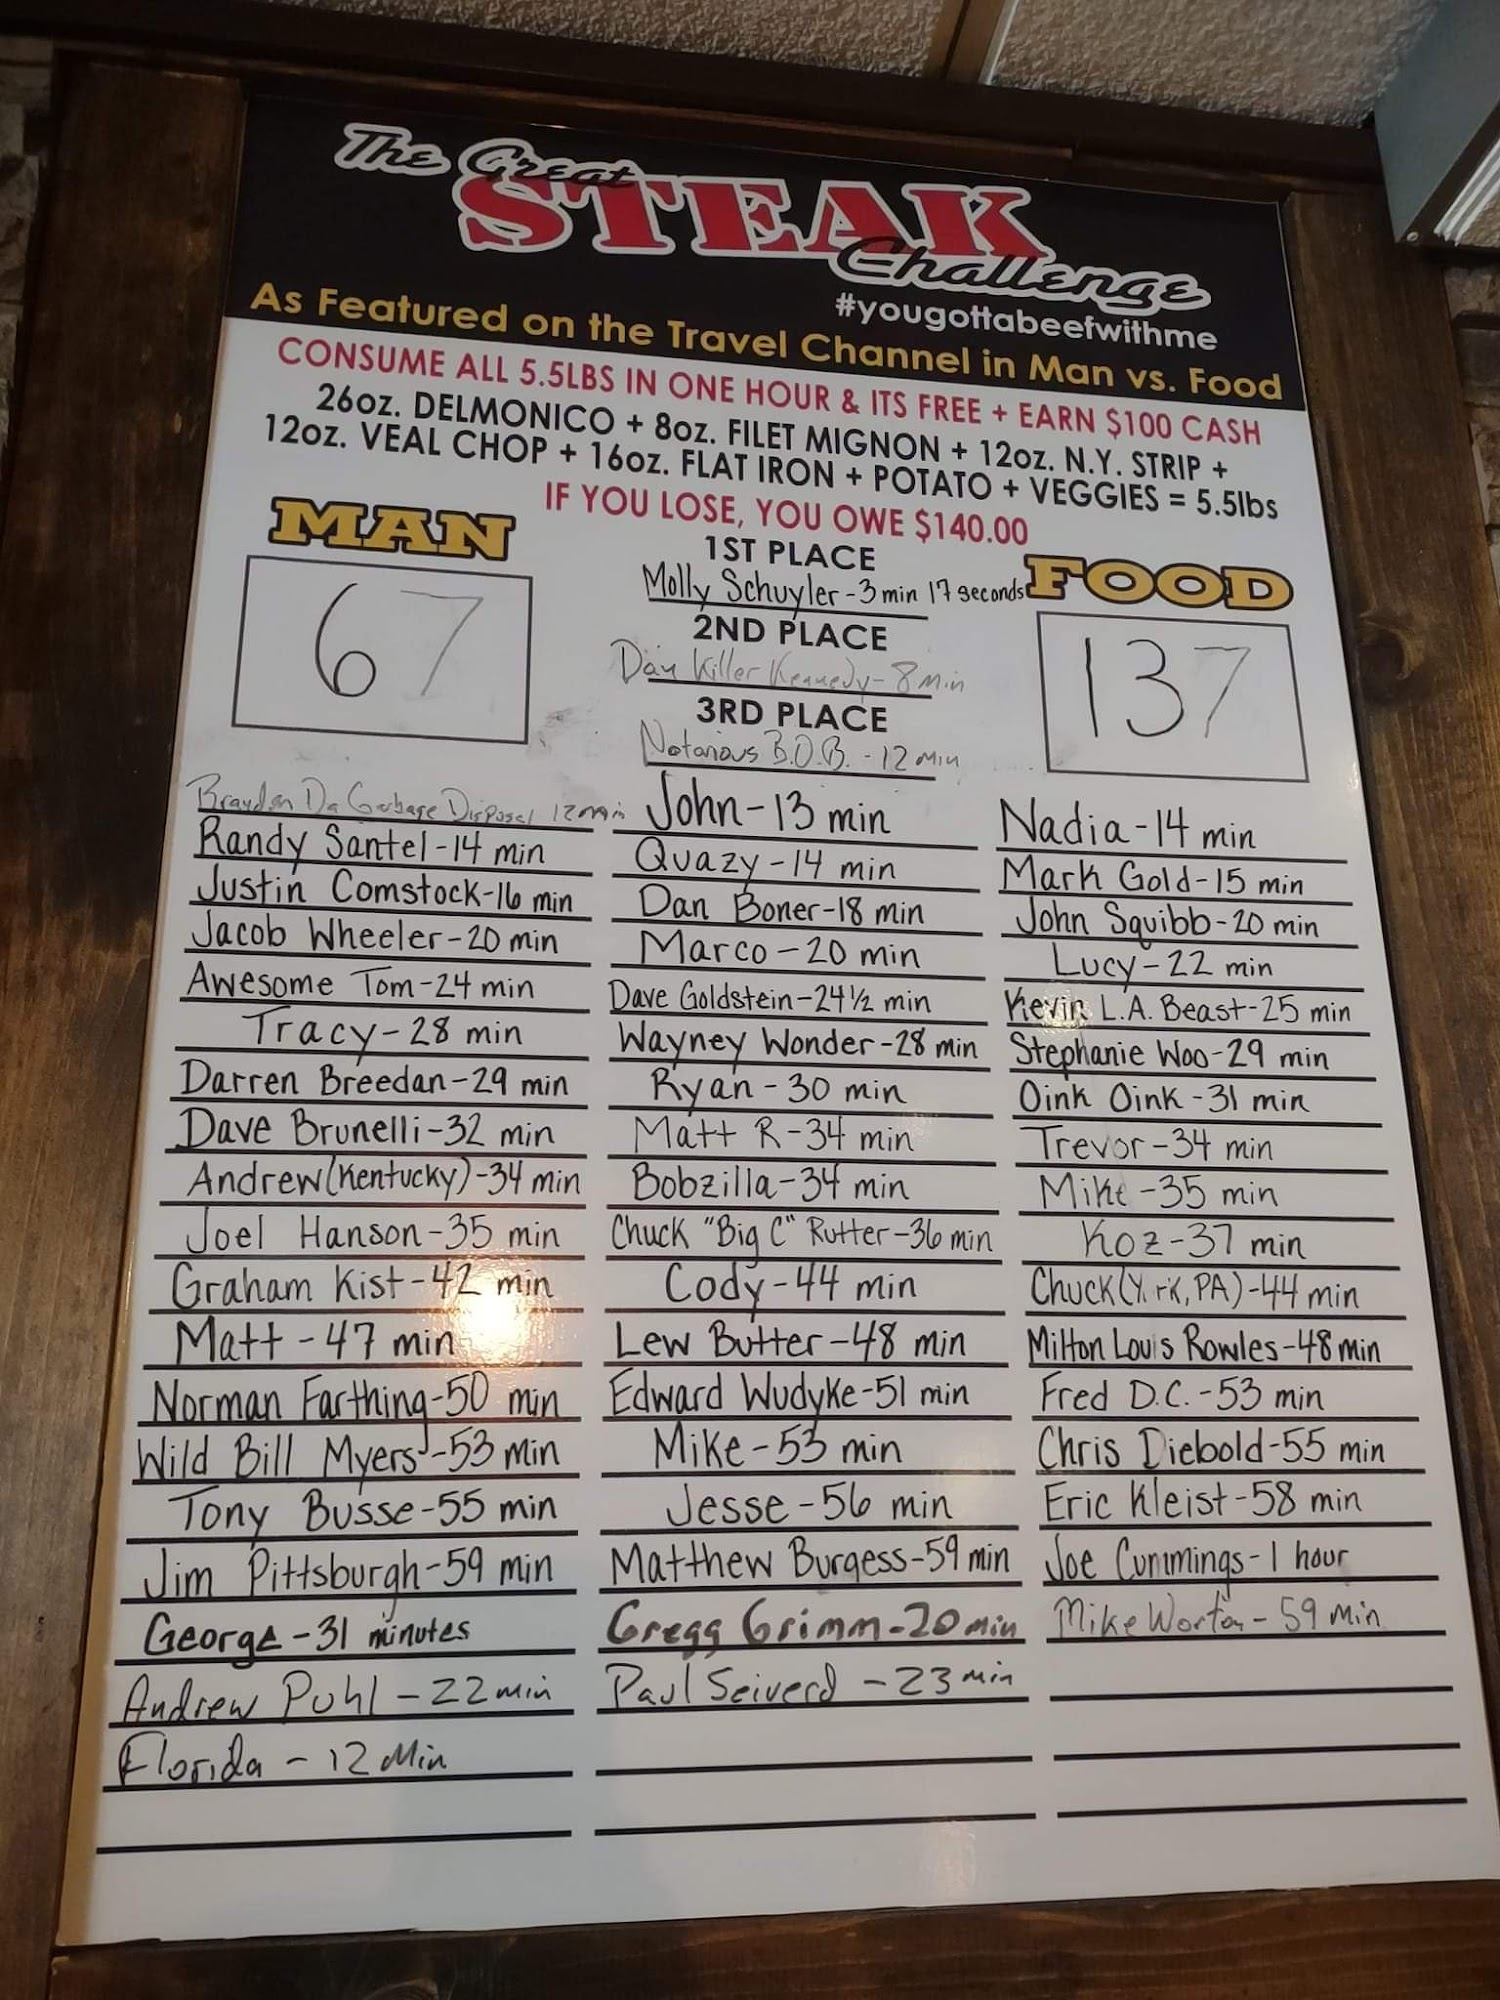 The Great
STEAK
Challenge
#yougottabeefwithme
As Featured on the Travel Channel in Man vs. Food
CONSUME ALL 5.5LBS IN ONE HOUR & ITS FREE + EARN $100 CASH
26oz. DELMONICO + 8oz. FILET MIGNON + 12oz. N.Y. STRIP +
12oz. VEAL CHOP + 16oz. FLAT IRON + POTATO + VEGGIES = 5.5lbs
IF YOU LOSE, YOU OWE $140.00
MAN
67
1ST PLACE
Molly Schuyler - 3 min 17 seconds
2ND PLACE
Dan Killer Kennedy - 8 Min
3RD PLACE
Notorious B.O.B. - 12 Min
FOOD
137
Brayden Da Garbage Disposal 12 min
Randy Santel - 14 min
Justin Comstock - 16 min
Jacob Wheeler - 20 min
Awesome Tom - 24 min
Tracy - 28 min
Darren Breedan - 29 min
Dave Brunelli - 32 min
Andrew (Kentucky) - 34 min
Joel Hanson - 35 min
Graham Kist - 42 min
Matt - 47 min
Norman Farthing - 50 min
Wild Bill Myers - 53 min
Tony Busse - 55 min
Jim Pittsburgh - 59 min
George - 31 minutes
Andrew Puhl - 22 min
Florida - 12 Min
John - 13 min
Quazy - 14 min
Dan Boner - 18 min
Marco - 20 min
Dave Goldstein - 24 1/2 min
Wayney Wonder - 28 min
Ryan - 30 min
Matt R - 34 min
Bobzilla - 34 min
Chuck "Big C" Rutter - 36 min
Cody - 44 min
Lew Butter - 48 min
Edward Wudyke - 51 min
Mike - 53 min
Jesse - 56 min
Matthew Burgess - 59 min
Gregg Grimm - 20 min
Paul Seiverd - 23 min
Nadia - 14 min
Mark Gold - 15 min
John Squibb - 20 min
Lucy - 22 min
Kevin L.A. Beast - 25 min
Stephanie Woo - 29 min
Oink Oink - 31 min
Trevor - 34 min
Mike - 35 min
Koz - 37 min
Chuck (Y rk, PA) - 44 min
Milton Louis Rowles - 48 min
Fred D.C. - 53 min
Chris Diebold - 55 min
Eric Kleist - 58 min
Joe Cummings - 1 hour
Mike Worton - 59 min